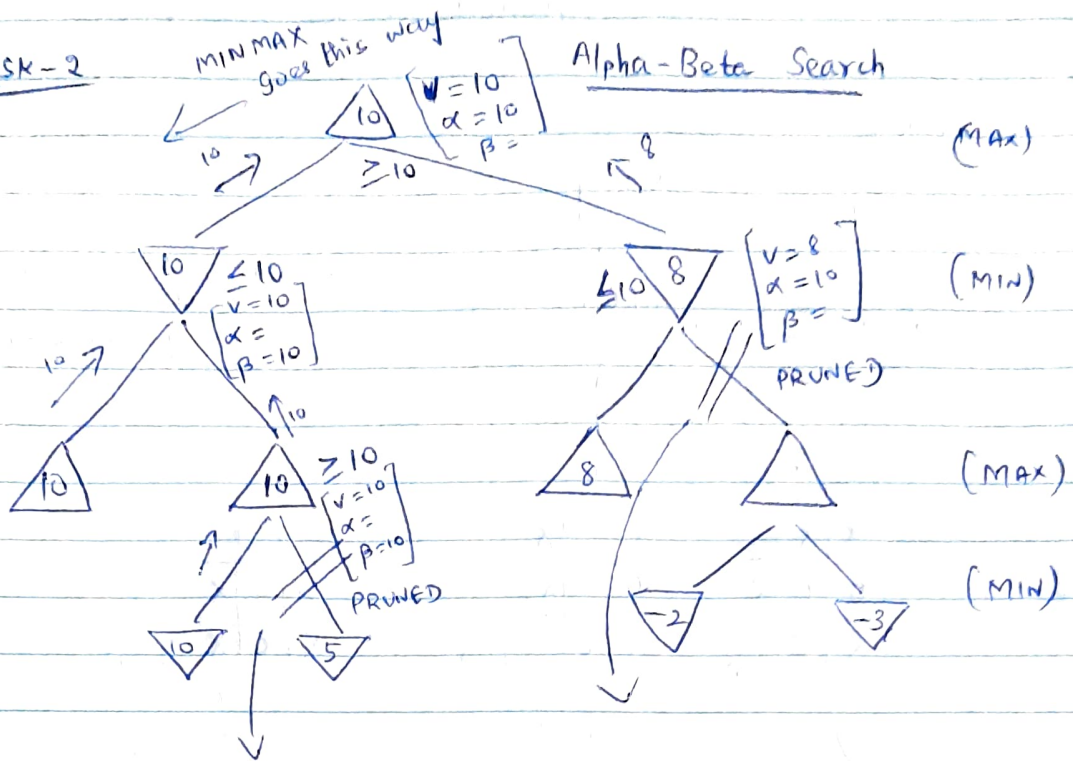 SK-2
MINMAX
goes this way
Alpha-Beta Search
10
[V=10
α=10
β=]
(MAX)
10
≥10
8
10
≤10
[V=10
α=
β=10]
≤10
8
[V=8
α=10
β=]
(MIN)
10
PRUNED
10
10
10
≥10
[V=10
α=
β=10]
8
(MAX)
PRUNED
10
5
-2
-3
(MIN)